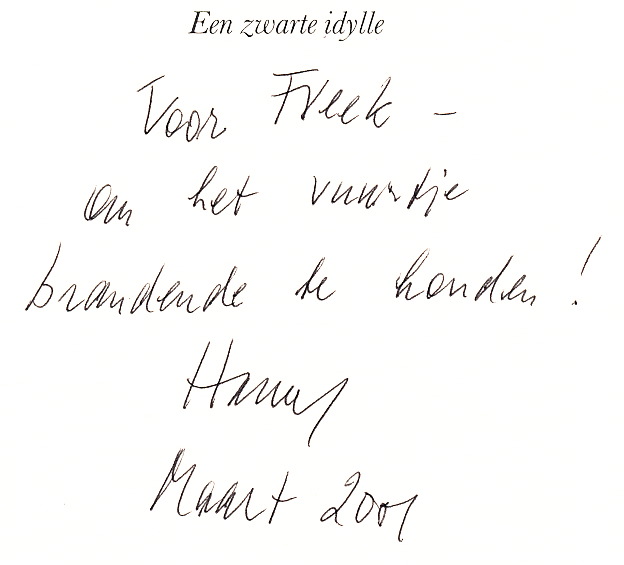 Een zwarte idylle
Voor Freek –
om het vuurtje
brandende te houden!
Maart 2001